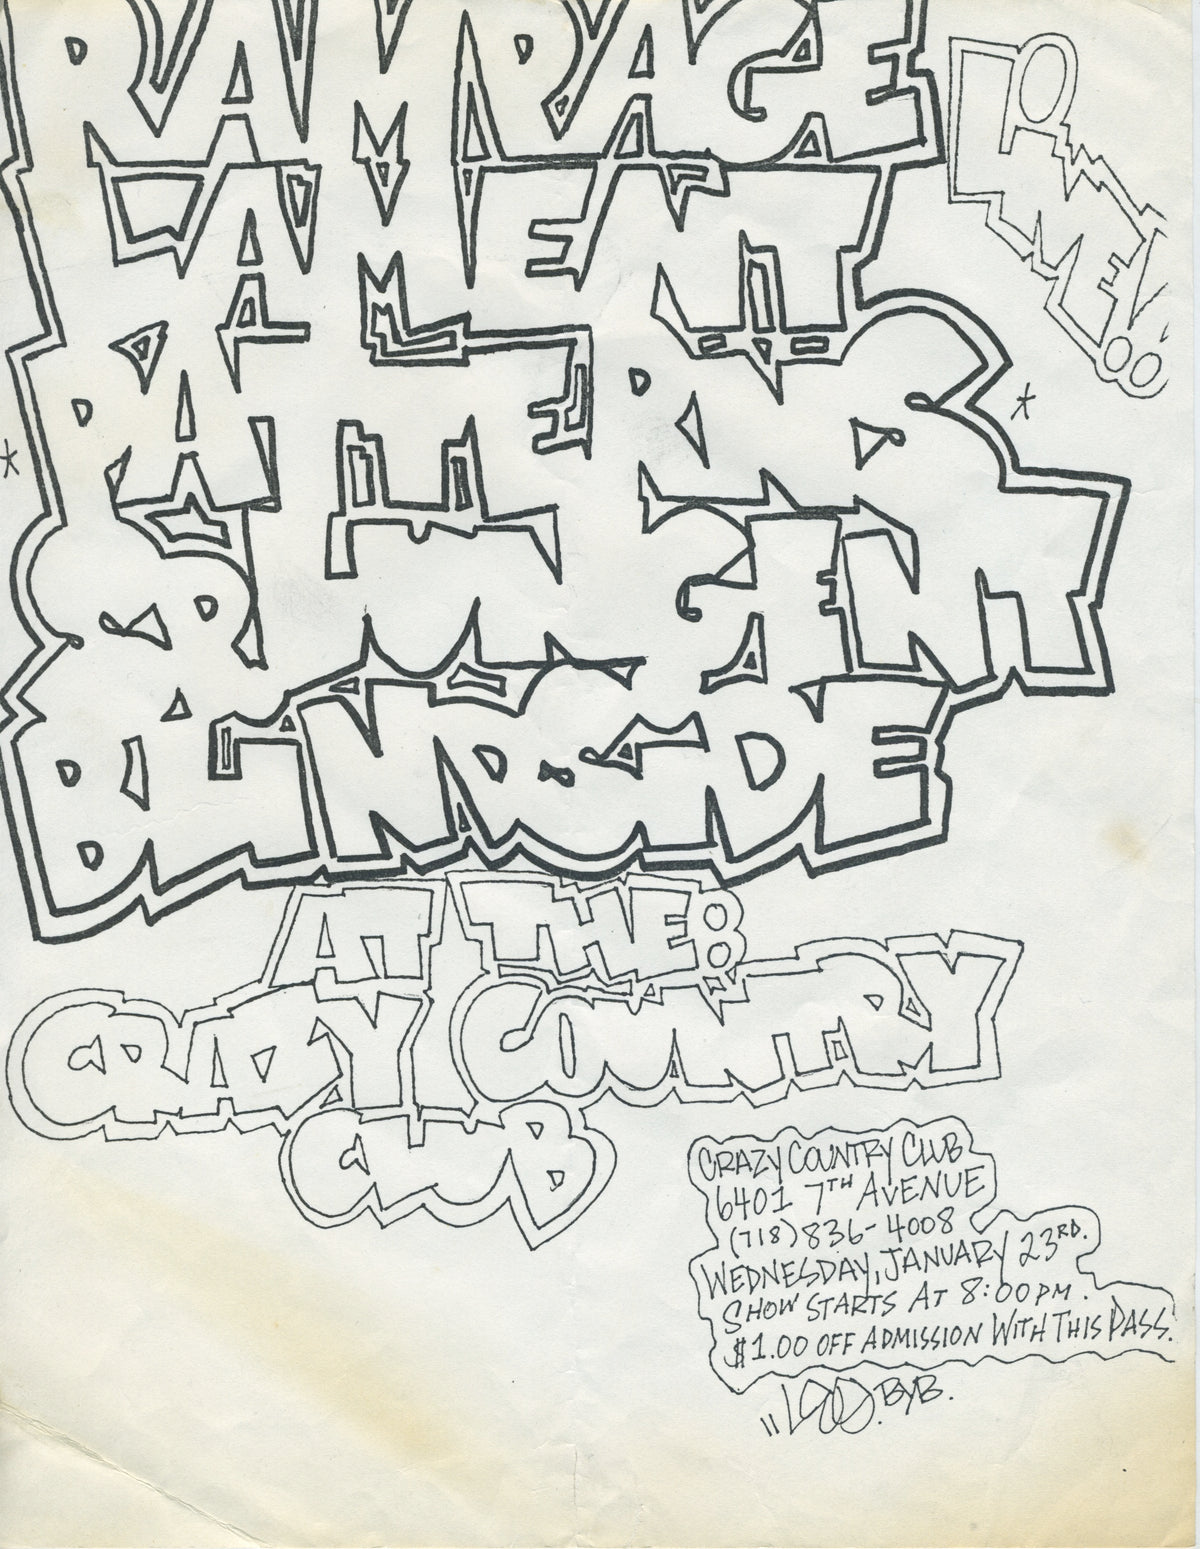 RAMPAGE
LAMENT
PATTERNS
& PUNGENT
BLINDSIDE
AT THE:
CRAZY COUNTRY
CLUB
CRAZY COUNTRY CLUB
6401 7TH AVENUE
(718) 836-4008
WEDNESDAY, JANUARY 23RD.
SHOW STARTS AT 8:00 PM.
$1.00 OFF ADMISSION WITH THIS PASS.
BYB.